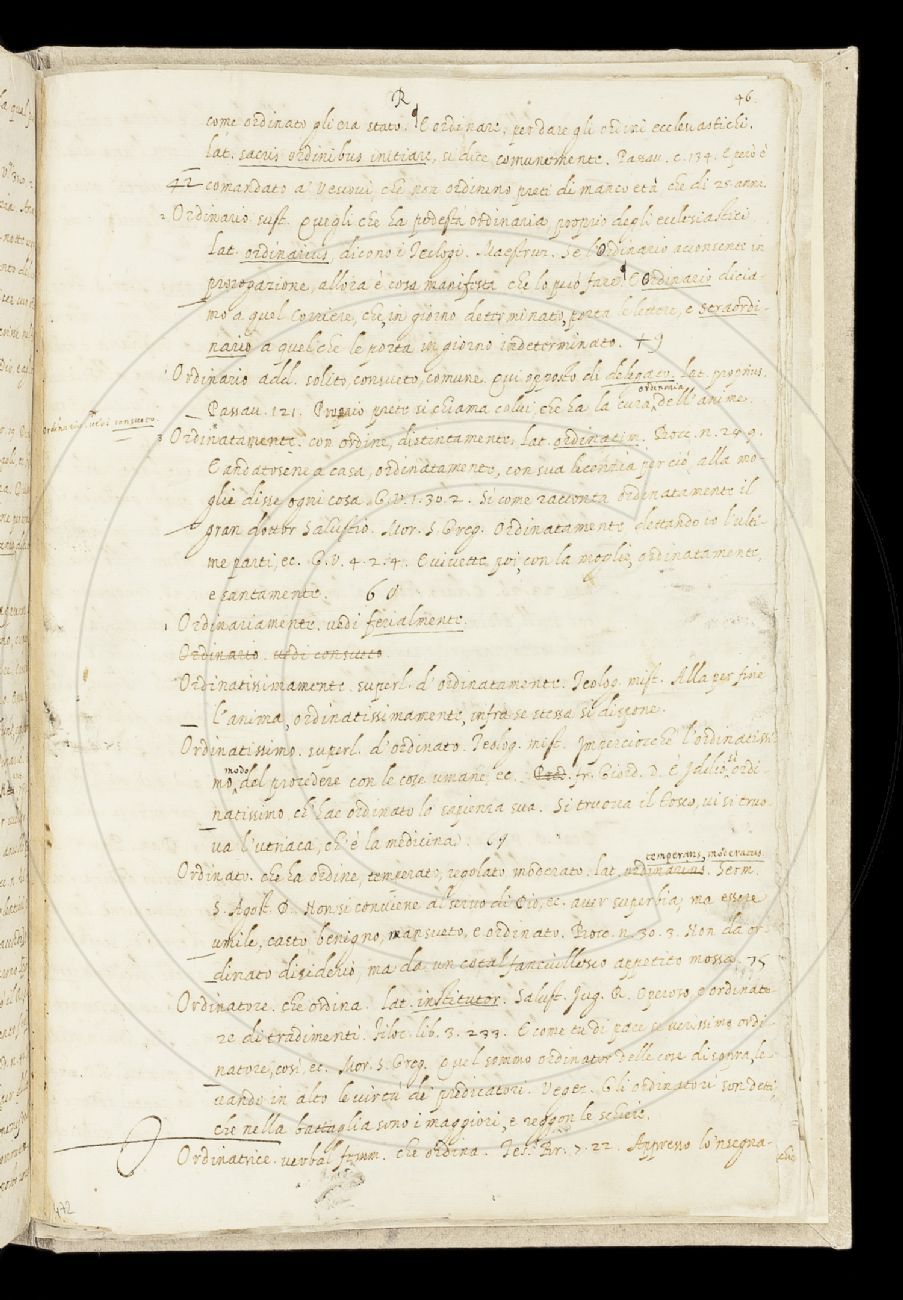 R 46
come ordinato gli era stato. E ordinare, per dare gli ordini ecclesiastichi.
lat. sacris ordinibus initiare, si dice comunemente. Passau. c. 134. E però è
42 comandato a' Vescovi, che non ordinino preti di manco età che di 25 anni.
2 Ordinario. sust. Quegli che ha podestà ordinaria, proprio degli ecclesiastici.
lat. ordinarius, dicono i Teologi. Maestruz. Se l'Ordinario acconsente in
prorogazione, allora è cosa manifesta che lo può fare. E Ordinario dicia-
mo a quel Corriere, che, in giorno determinato, porta le lettere, e straordi-
nario a quel che le porta in giorno indeterminato. + 9
1 Ordinario add. solito, consueto, comune. qui opposto di delegato. lat. proprius.
Passau. 121. Proprio prete si chiama colui, che ha la cura ordinaria dell'anime.
ordinario. vedi consueto.
3 Ordinatamente. con ordine, distintamente. lat. ordinatim. Bocc. n. 28. 9.
E andatosene a casa, ordinatamente, con sua licenzia per ciò, alla mo-
glie disse ogni cosa. G. V. 1. 30. 2. Si come racconta ordinatamente il
gran dottor Salustio. Mor. S. Greg. Ordinatamente dettando io l'ulti-
me parti, ec. G. V. 4. 2. 4. E vivette, poi, con la moglie, ordinatamente,
e santamente. 6
1 Ordinariamente. vedi ferialmente.
Ordinario. vedi consueto.
Ordinatisimamente. superl. d'ordinatamente. Teolog. mist. Alla per fine
l'anima, ordinatissimamente, infra se stessa si dispone.
Ordinatissimo. superl. d'ordinato. Teolog. mist. Imperciocche l'ordinatissi-
mo modo del procedere con le cose umane, ec. fr. Giord. D. E Idelio, si ordi-
natissimo, ch'hae ordinato lo sapienza sua. Si truova il tosco, vi si truo-
va l'utriaca, ch'è la medicina. 69
Ordinato. che ha ordine, temperato, regolato moderato. lat. ordinarius temperans, moderatus. Serm.
S. Agost. D. Non si conviene al servo di Dio, ec. aver superbia, ma essere
umile, casto benigno, mansueto, e ordinato. Bocc. n. 30. 3. Non da or-
dinato disiderio, ma da un cotal fanciullesco appetito mossa. 75
Ordinatore. che ordina. lat. institutor. Salust. Jug. R. Operoso, e ordinato-
re di tradimenti. Filoc. lib. 3. 233. E come tu di pace se' verissimo ordi-
natore, così, ec. Mor. S. Greg. Quel sommo ordinator delle cose di sopra, le-
vando in alto le virtù de' predicatori. Veget. Gli ordinatori son detti,
che nella battaglia sono i maggiori, e reggon le schiere.
Ordinatrice. verbal femm. che ordina. Tes. Br. 7. 22. Appresso lo'nsegna-
472